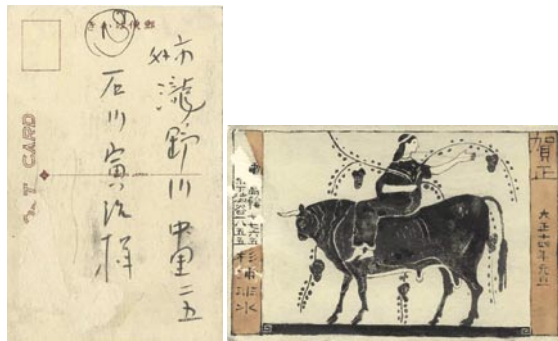 きかは便郵
T CARD
市外瀧ノ野川中里二五
石川寅治様
賀正
大正十四年元旦
高輪
杉浦非水